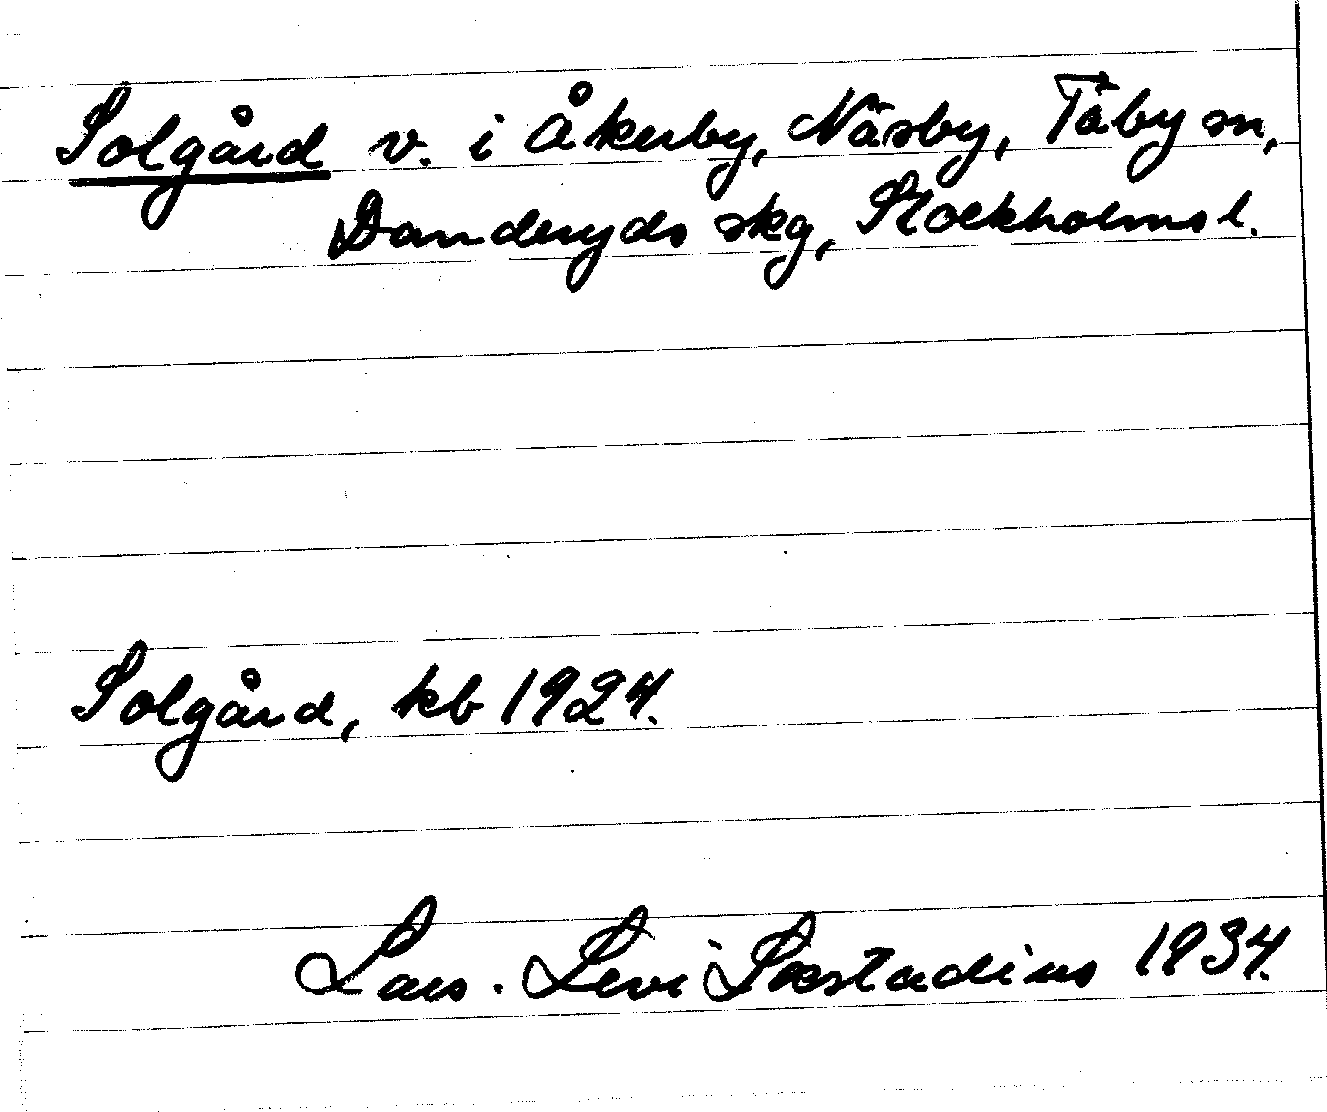 Solgård v. i Åkerby, Näsby, Täby sn,
Danderyds skg, Stockholms l.
Solgård, kb 1924.
Lars. Levi Læstadius 1934.